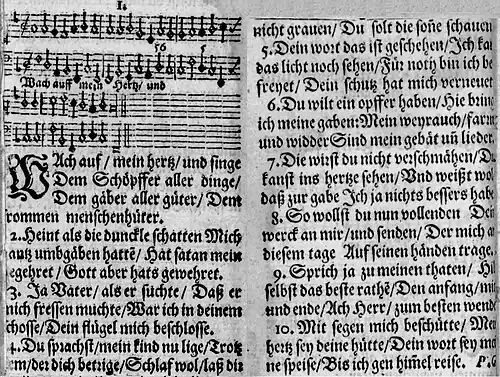 I.
56 5
Wach auff mein Hertz/ und
WAch auf/ mein hertz/ und singe
Dem Schöpffer aller dinge/
Dem gäber aller güter/ Dem
frommen menschenhüter.
2. Heint als die dunckle schatten Mich
gantz umbgäben hattē/ Hat satan mein
begehret/ Gott aber hats gewehret.
3. Ja Vater/ als er suchte/ Daß er
mich fressen muchte/ War ich in deinem
schosse/ Dein flügel mich beschlosse.
4. Du sprachst/ mein kind nu lige/ Trotz
dem/ der dich betrige/ Schlaf wol/ laß dir
nicht grauen/ Du solt die soñe schauen
5. Dein wort das ist geschehen/ Ich kan
das licht noch sehen/ Für noth bin ich be
freyet/ Dein schutz hat mich verneuet
6. Du wilt ein opffer haben/ Hie bring
ich meine gaben: Mein weyrauch/ farrn
und widder Sind mein gebät uñ lieder.
7. Die wirst du nicht verschmähen/ Du
kanst ins hertze sehen/ Und weißt wol
daß zur gabe Ich ja nichts bessers hab
8. So wollst du nun vollenden Dein
werck an mir/ und senden/ Der mich an
diesem tage Auf seinen händen trage.
9. Sprich ja zu meinen thaten/ Hilf
selbst das beste rathē/ Den anfang/ mitt
und ende/ Ach Herr/ zum besten wende
10. Mit segen mich beschütte/ Mein
hertz sey deine hütte/ Dein wort sey mei
ne speise/ Bis ich gen him̃el reise. P.G